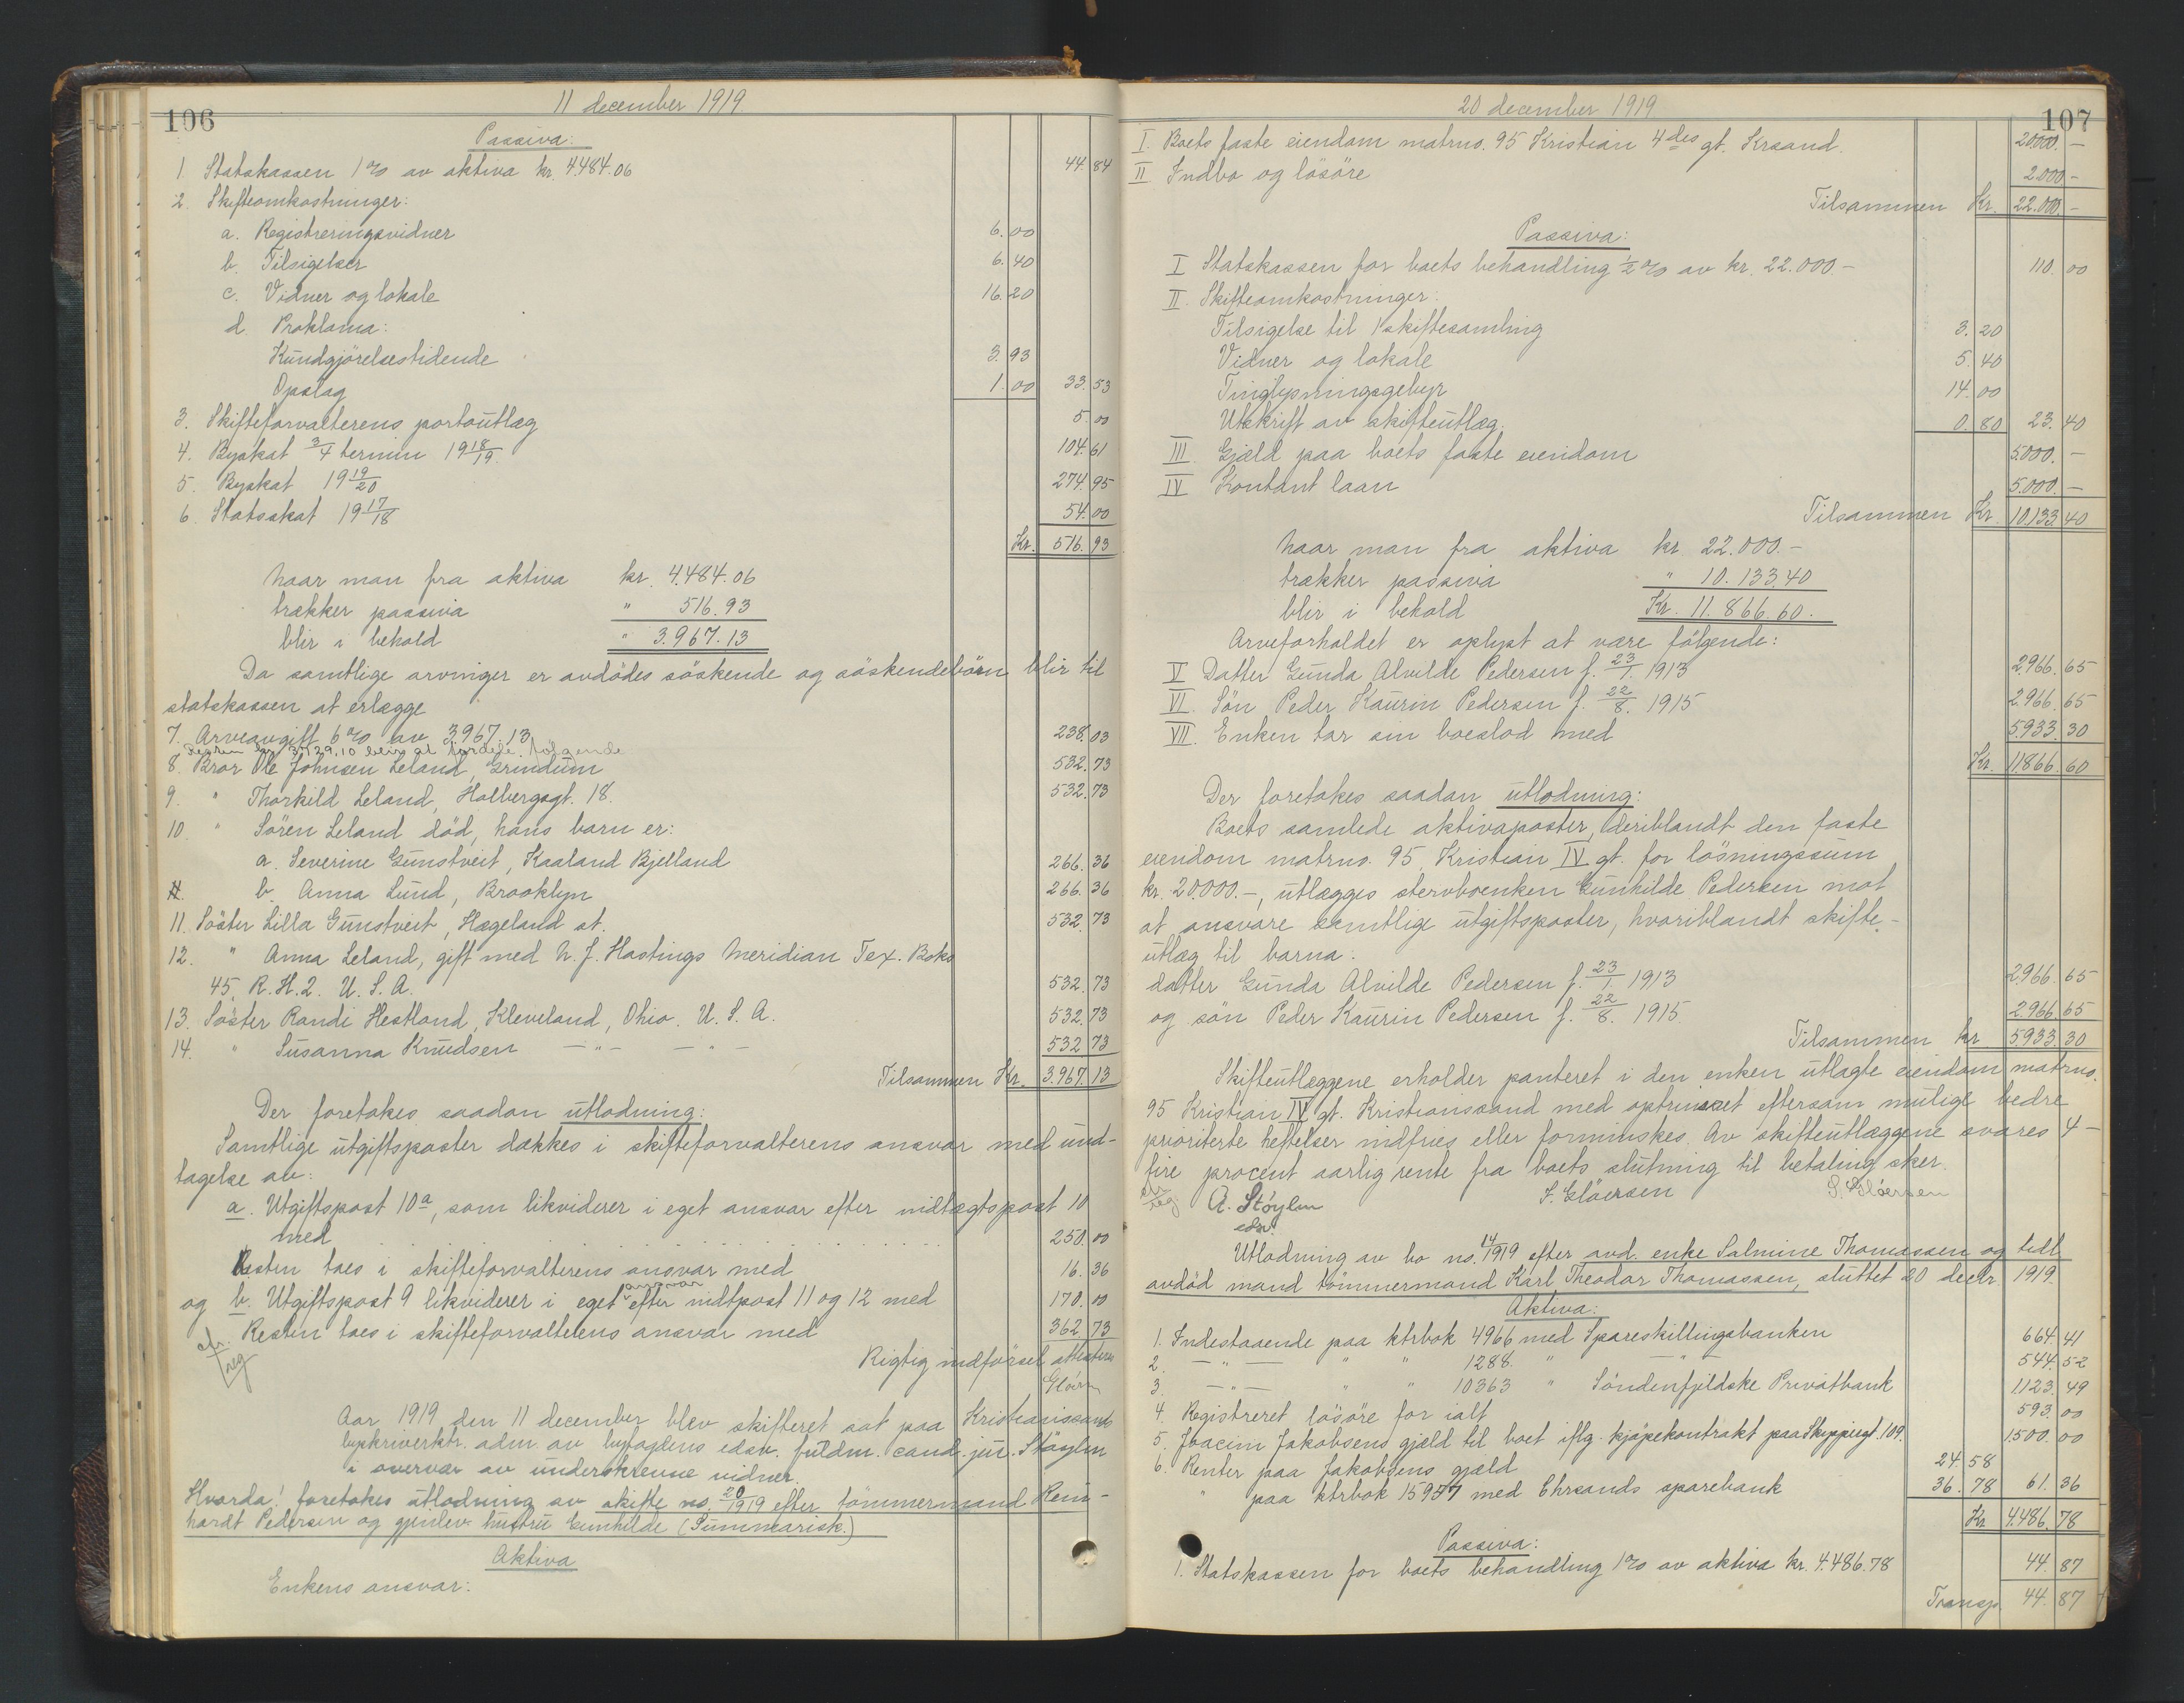 106
11 december 1919
Passiva:
1. Statskassen 1% av aktiva kr. 4.484.06 44.84
2. Skifteomkostninger:
a. Registreringsvidner 6.00
b. Tilsigelser 6.40
c. Vidner og lokale 16.20
d. Proklama:
Kundgjörelsestidende 3.93
Opslag 1.00 33.53
3. Skifteforvalterens portoutlæg 5.00
4. Byskat 3/4 termin 1918/19. 104.61
5. Byskat 1919/20 274.95
6. Statsskat 1917/18 54.00
Kr. 516.93
Naar man fra aktiva kr. 4.484.06
trækker passiva " 516.93
blir i behold " 3.967.13
Da samtlige arvinger er avdödes söskende og söskendebörn blir til
statskassen at erlægge
7. Arveavgift 6% av 3.967.13 238.03
Resten kr. 3.729.10 blir at fordele følgende
8. Bror Ole Johnsen Leland, Grindum 532.73
9. " Thorkild Leland, Holbergsgt. 18. 532.73
10. " Sören Leland död, hans barn er:
a. Severine Gunstveit, Kaaland Bjelland 266.36
11. b. Anna Lund, Brooklyn 266.36
11. Söster Lilla Gunstveit, Hægeland st. 532.73
12. " Anna Leland, gift med N. J. Hastings Meridian Tex. Boks
45. R.H.2. U.S.A. 532.73
13. Söster Randi Hestland, Kleveland, Ohio. U.S.A. 532.73
14. " Susanna Knudsen —"— —"— 532.73
Tilsammen Kr. 3.967.13
Der foretokes saadan utlodning:
Samtlige utgiftsposter dækkes i skifteforvalterens ansvar med und-
tagelse av:
a. Utgiftspost 10a, som likviderer i eget ansvar efter indtægtspost 10
med 250.00
Resten taes i skifteforvalterens ansvar med 16.36
og b. Utgiftspost 9 likviderer i eget ansvar efter indtpost 11 og 12 med 170.00
Resten taes i skifteforvalterens ansvar med 362.73
cfr. reg
Rigtig indførsel attesteres
Glörsen
Aar 1919 den 11 december blev skifteret sat paa Kristianssands
byskriverktr. adm. av byfogdens edsv. fuldm. cand. jur. Stöylen
i overvær av underskrevne vidner.
Hvorda! foretokes utlodning av skifte no. 20/1919 efter tömmermand Rein-
hardt Pedersen og gjenlev. hustru Gunhilde (Summarisk.)
Aktiva
Enkens ansvar:
107
20 december 1919
I. Boets faste eiendom matrno. 95 Kristian 4des gt. Krsand. 20.000.—
II Indbo og lösöre 2.000—
Tilsammen Kr. 22.000.—
Passiva:
I Statskassen for boets behandling 1/2% av kr. 22.000.— 110.00
II. Skifteomkostninger:
Tilsigelse til 1 skiftesamling 3.20
Vidner og lokale 5.40
Tinglysningsgebyr 14.00
Utskrift av skifteutlæg. 0.80 23.40
III Gjæld paa boets faste eiendom 5.000.—
IV Kontant laan 5.000.—
Tilsammen Kr. 10.133.40
Naar man fra aktiva kr. 22.000.—
trækker passiva " 10.133.40
blir i behold Kr. 11.866.60.
Arveforholdet er oplyst at være fölgende:
V Datter Gunda Alvilde Pedersen f. 23/1. 1913 2.966.65
VI. Sön Peder Kaurin Pedersen f. 22/8. 1915 2.966.65
VII. Enken tar sin boeslod med 5.933.30
Kr. 11.866.60
Der foretokes saadan utlodning:
Boets samlede aktivaposter, deriblandt den faste
eiendom matrno. 95 Kristian IV gt. for lösningssum
kr. 20.000.—, utlægges stervboenken Gunhilde Pedersen mot
at ansvare samtlige utgiftsposter, hvoriblandt skifte-
utlæg til barna:
datter Gunda Alvilde Pedersen f. 23/1 1913 2.966.65
og sön Peder Kaurin Pedersen f. 22/8. 1915 2.966.65
Tilsammen kr 5.933.30
Skifteutlæggene erholder panteret i den enken utlagte eiendom matrno.
95 Kristian IV gt. Kristianssand med optrinsret eftersom mulige bedre
prioriterte heftelser indfries eller forminskes. Av skifteutlæggene svares 4—
fire procent aarlig rente fra boets slutning til betaling sker.
cfr reg. A. Stöylen
edsv.
S. Glöersen S. Glöersen
Utlodning av bo no. 14/1919 efter avd. enke Salmine Thomassen og tidl
avdöd mand tömmermand Karl Theodor Thomassen, sluttet 20 decbr. 1919.
Aktiva:
1. Indestaaende paa ktrbok 4966 med Spareskillingsbanken 664.41
2. —"— " " 1288. " —"— 544.52
3. —"— " " 10363 " Söndenfjeldske Privatbank 1.123.49
4. Registreret lösöre for ialt 593.00
5. Joacim Jakobsens gjæld til boet iflg. kjöpekontrakt paa Skippergt. 109. 1.500.00
6. Renter paa Jakobsens gjæld 24.58
" paa ktrbok 15957 med Chrsands sparebank 36.78 61.36
Kr 4.486.78
Passiva:
1. Statskassen for boets behandling 1% av aktiva kr. 4.486.78 44.87
Transp. 44.87